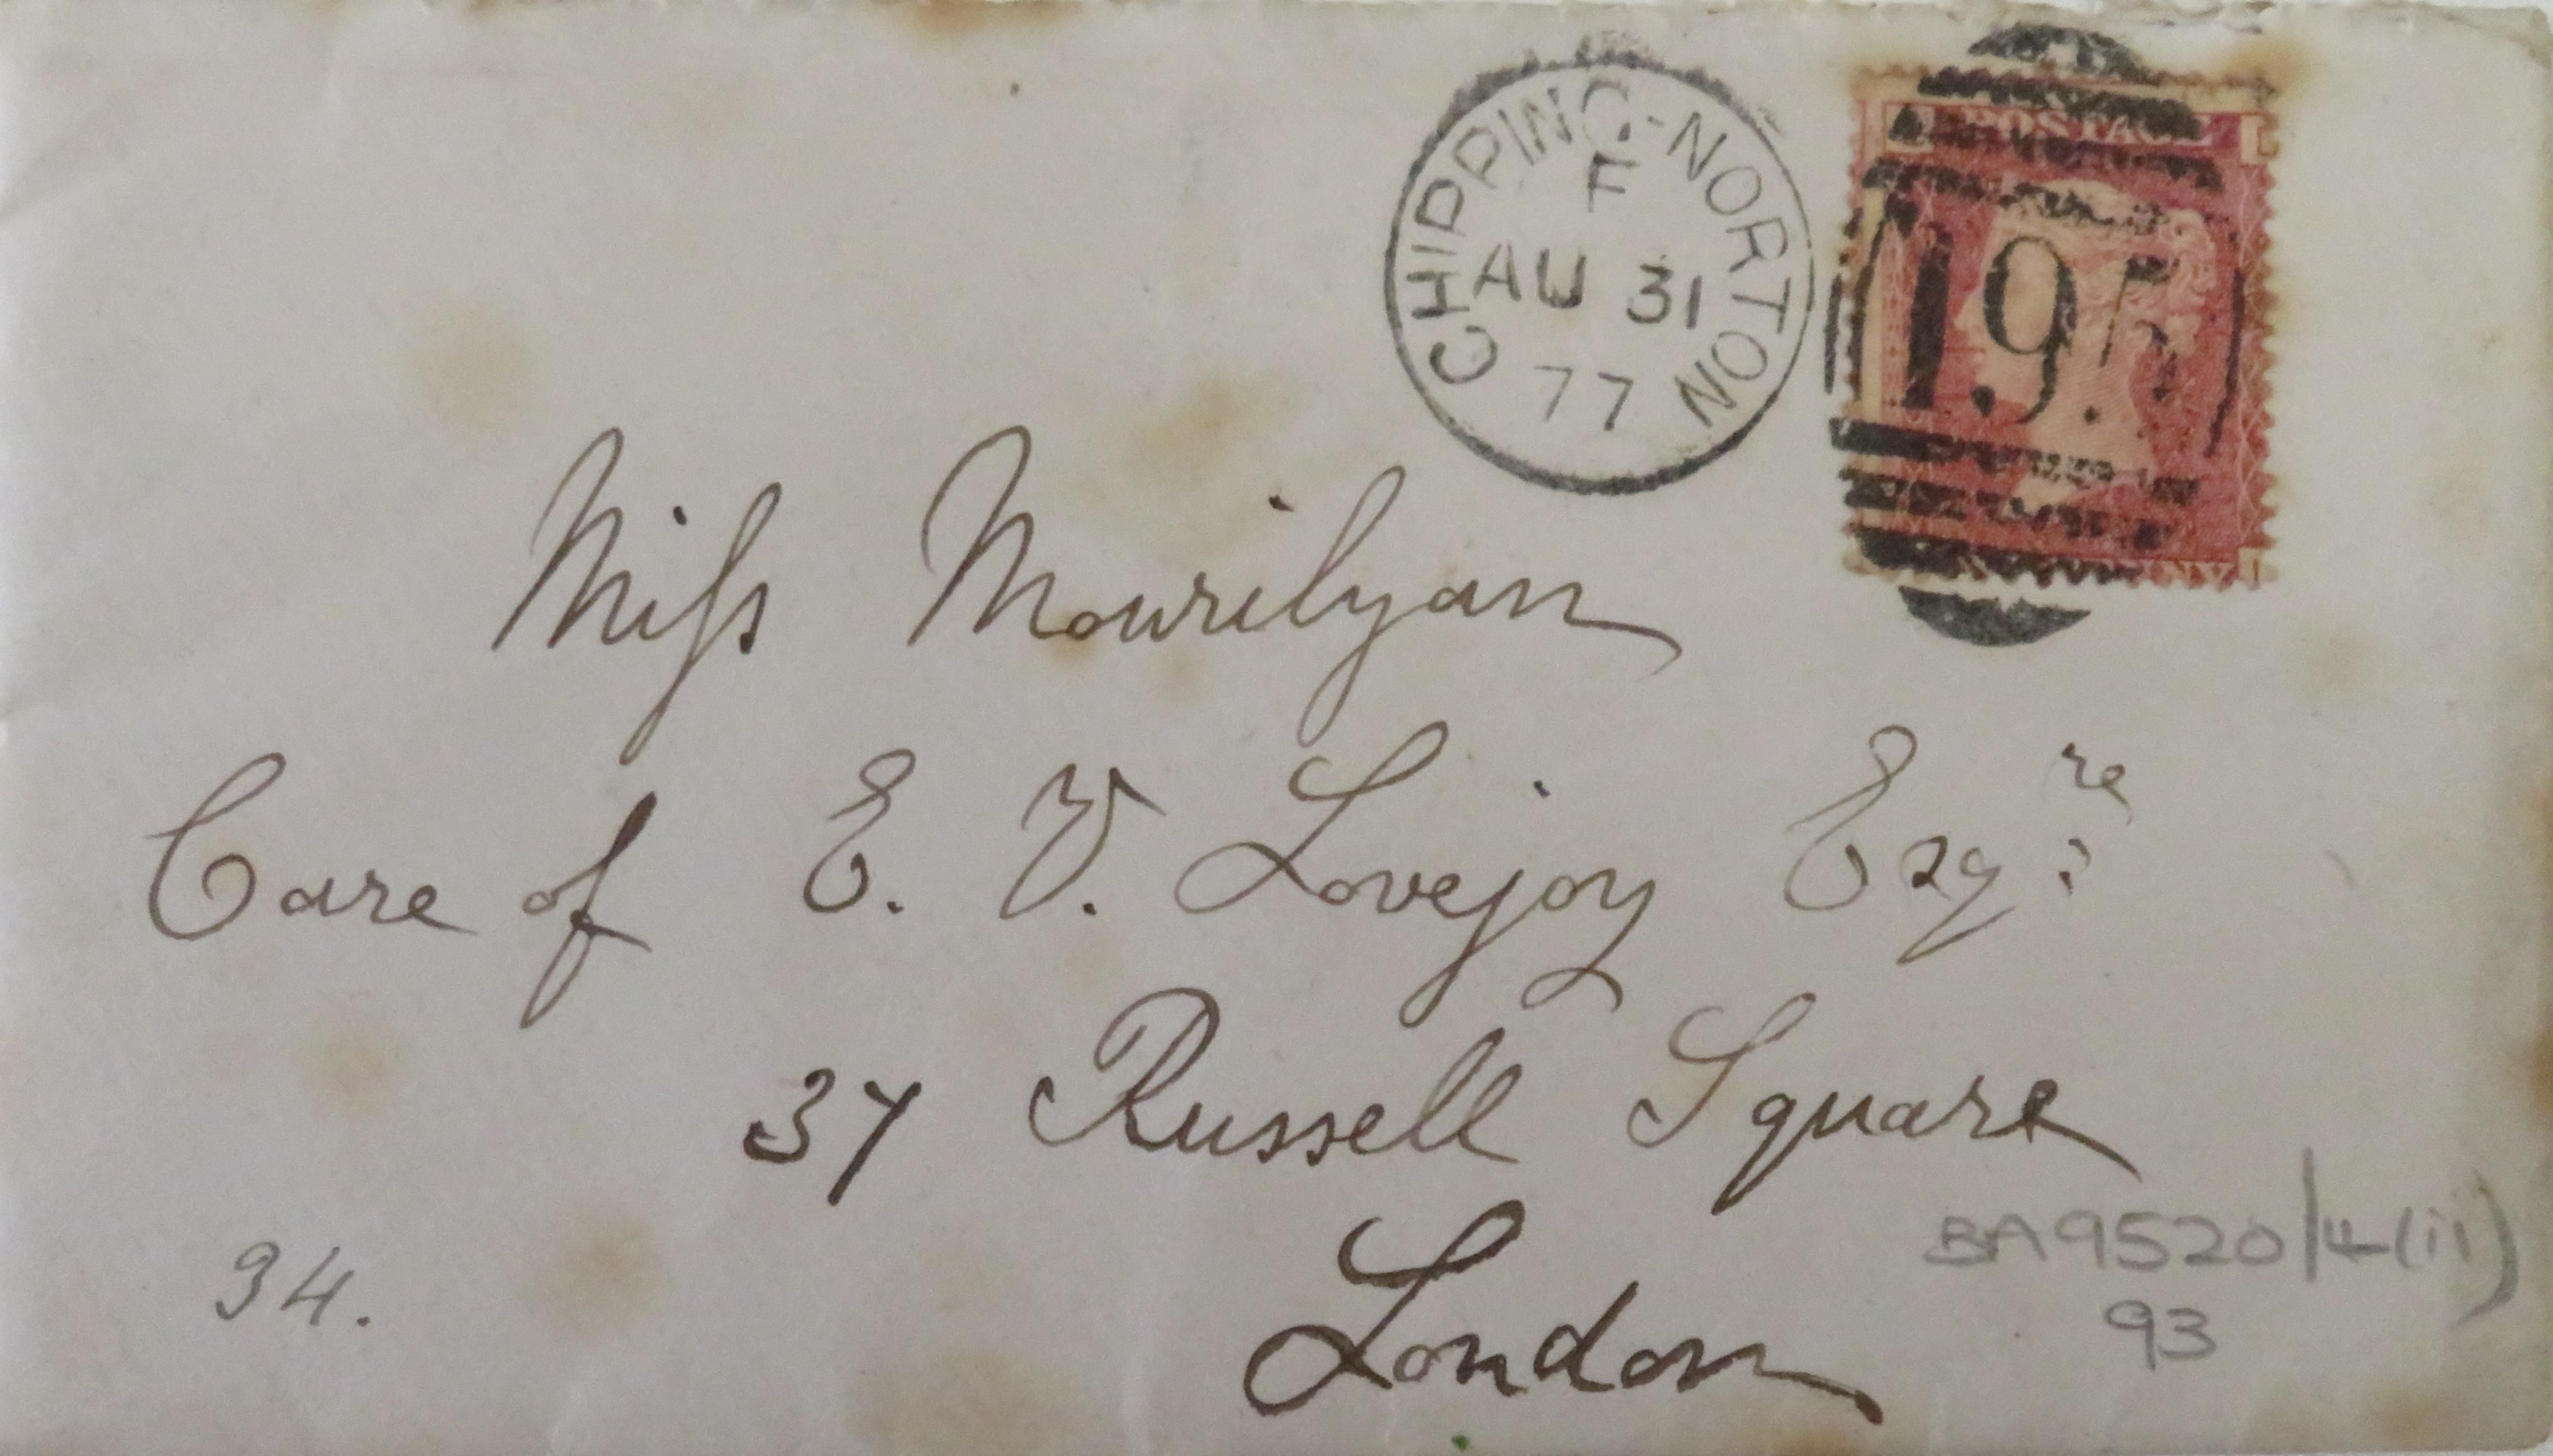 CHIPPING-NORTON
F
AU 31
77
POSTAGE
195
Miss Mourilyan
Care of E. V. Lovejoy Esqre
37 Russell Square
London
34.
BA9520/4(ii)
93